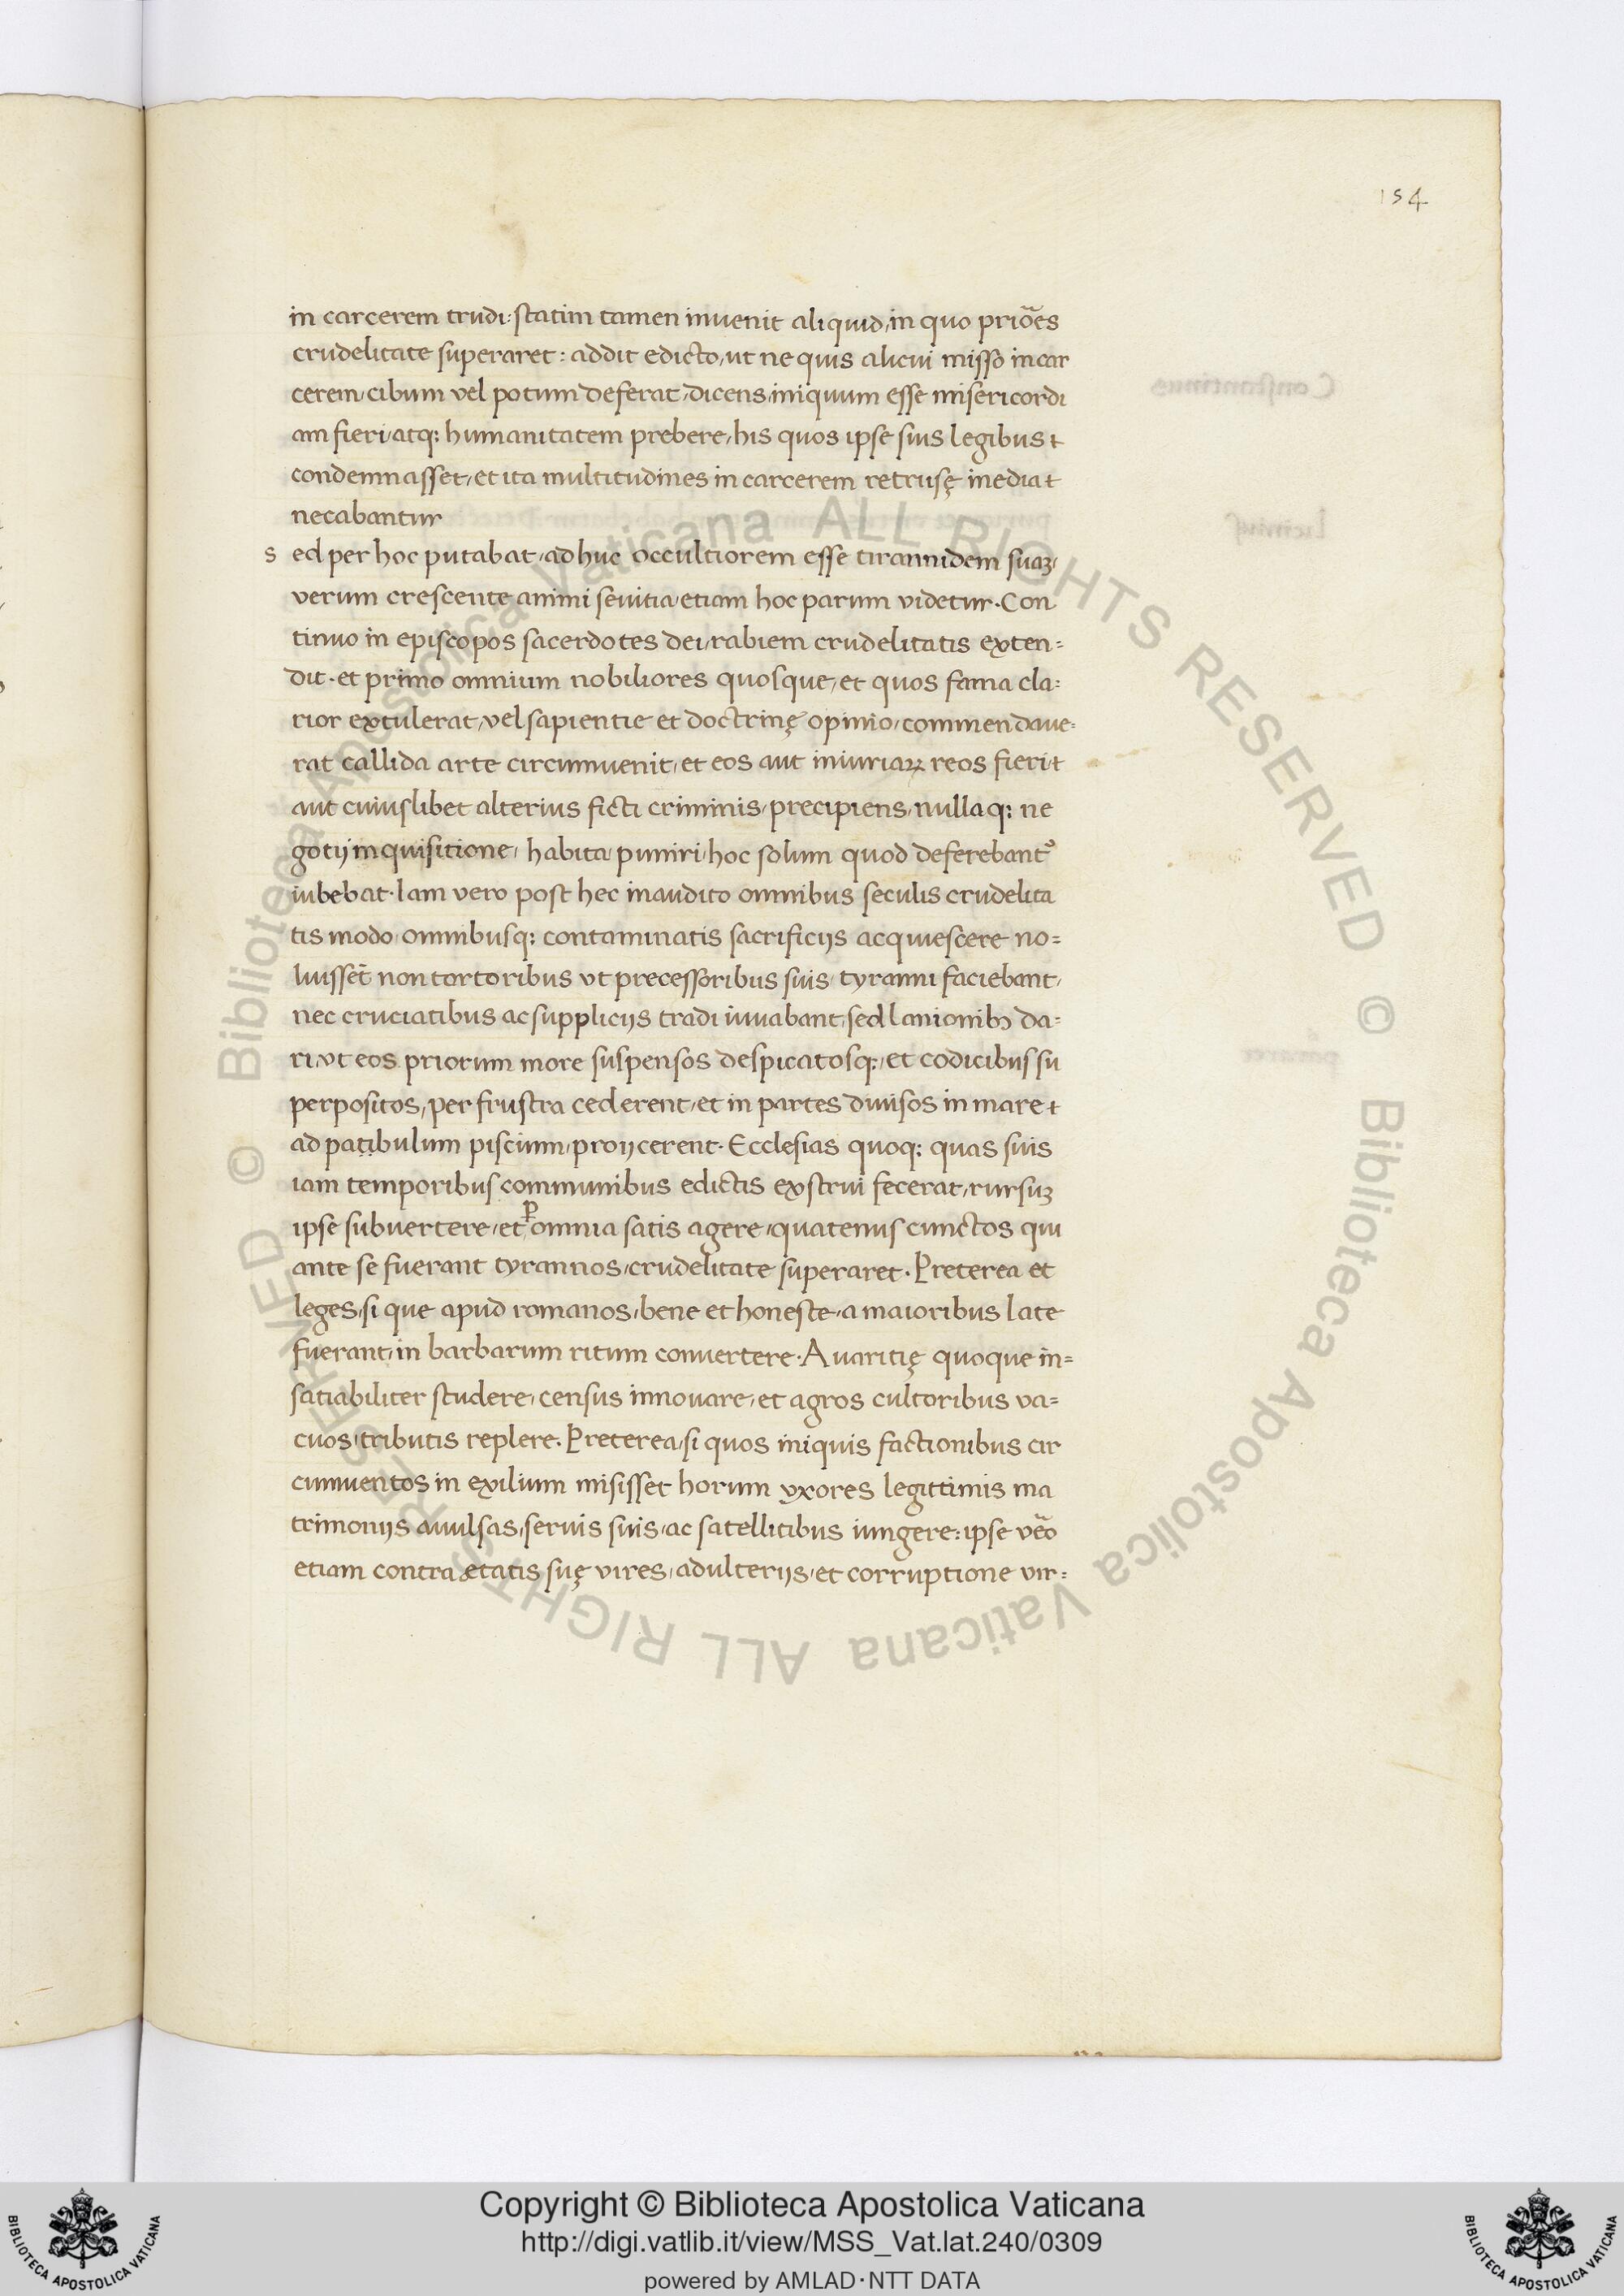 154
in carcerem trudi: statim tamen invenit aliquid, in quo prio͂es
crudelitate superaret: addit edicto, ut ne quis alicui misso in car
cerem, cibum vel potum deferat, dicens, iniquum esse misericordi
am fieri, atq; humanitatem prebere, his quos ipse suis legibus t
condemnasset, et ita multitudines in carcerem retrusę inedia t
necabantur
S ed per hoc putabat, adhuc occultiorem esse tirannidem suaꝫ,
verum crescente animi sevitia, etiam hoc parum videtur. Con
tinuo in episcopos sacerdotes dei, rabiem crudelitatis exten=
dit. et primo omnium nobiliores quosque, et quos fama cla=
rior extulerat, vel sapientie et doctrinę opinio, commendave=
rat callida arte circumvenit, et eos aut iniuriaꝝ reos fieri t
aut cuiuslibet alterius ficti criminis, precipiens, nullaq; ne
gotij inquisitione, habita puniri, hoc solum quod deferebant᷒
iubebat. Iam vero post hec inaudito omnibus seculis crudelita
tis modo, omnibusq; contaminatis sacrificijs acquiescere no=
luisset̄ non tortoribus ut precessoribus suis, tyranni faciebant,
nec cruciatibus ac supplicijs tradi iuvabant, sed lanionibꝫ da=
ri, ut eos priorum more suspensos despicatosq;, et codicibus su
perpositos, per frustra cederent, et in partes divisos in mare t
ad patibulum piscium, proijcerent. Ecclesias quoq; quas suis
iam temporibus communibus edictis exstrui fecerat, rursuꝫ
ipse subvertere, et ꝑ omnia satis agere, quatenus cunctos qui
ante se fuerant tyrannos, crudelitate superaret. Preterea et
leges, si que apud romanos, bene et honeste, a maioribus late
fuerant, in barbarum ritum convertere. Avaritię quoque in=
satiabiliter studere, census innovare, et agros cultoribus va=
cuos, tributis replere. Preterea, si quos iniquis factionibus cir
cumventos in exilium misisset horum uxores legittimis ma
trimonijs avulsas, servis suis, ac satellitibus iungere: ipse ve͂o
etiam contra ętatis suę vires, adulterijs, et corruptione vir=
Copyright © Biblioteca Apostolica Vaticana
http://digi.vatlib.it/view/MSS_Vat.lat.240/0309
powered by AMLAD·NTT DATA
BIBLIOTECA APOSTOLICA VATICANA
BIBLIOTECA APOSTOLICA VATICANA
© Biblioteca Apostolica Vaticana ALL RIGHTS RESERVED © Biblioteca Apostolica Vaticana ALL RIGHTS RESERVED